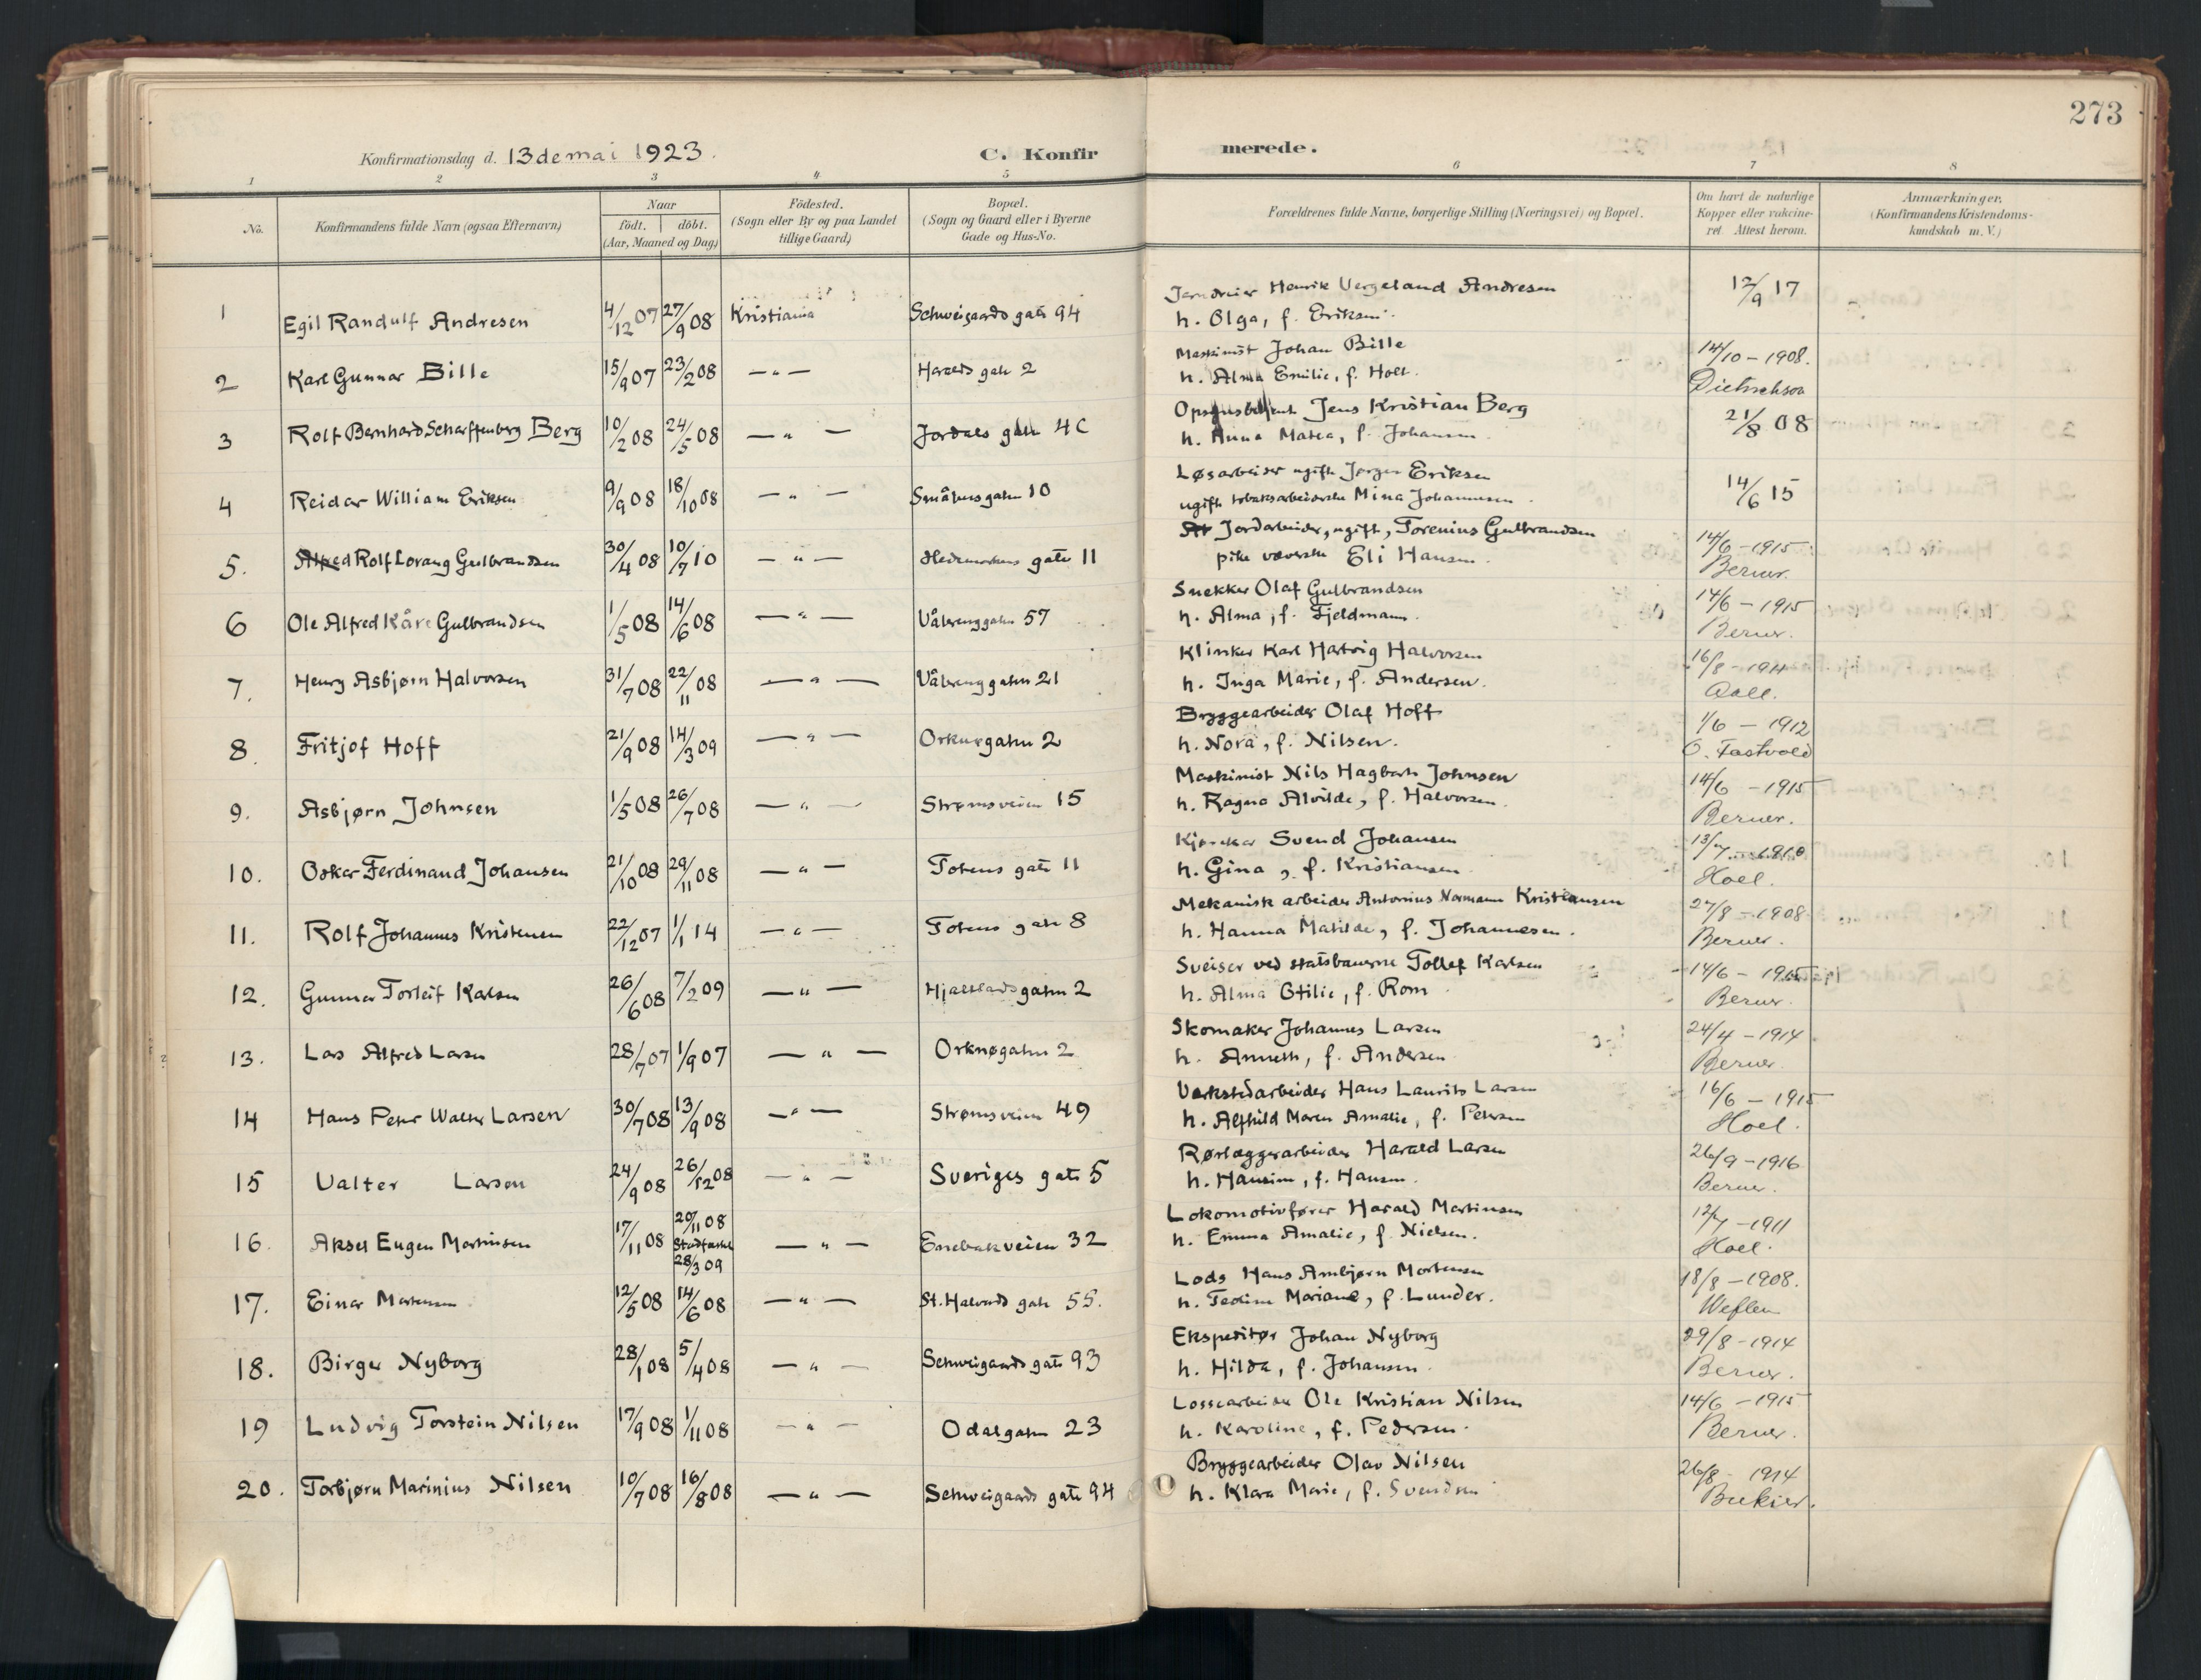 273
Konfirmationsdag d. 13de mai 1923.
C. Konfirmerede.
1 2 3 4 5 6 7 8
No.
Konfirmandens fulde Navn (ogsaa Efternavn)
Naar
födt. döbt.
(Aar, Maaned og Dag)
Födested.
(Sogn eller By og paa Landet
tillige Gaard)
Bopæl.
(Sogn og Gaard eller i Byerne
Gade og Hus-No.
Forældrenes fulde Navne, borgerlige Stilling (Næringsvei) og Bopæl.
Om havt de naturlige
Kopper eller vakcine-
ret Attest herom.
Anmærkninger.
(Konfirmandens Kristendoms-
kundskab m.V.)
1 Egil Randulf Andresen 4/12 07 27/9 08 Kristiania Schweigaards gate 94
Jerndreier Henrik Vergeland Andresen
h. Olga, f. Eriksen. 12/9 17
2 Karl Gunnar Bille 15/9 07 23/2 08 — " — Haralds gate 2
Maskinist Johan Bille
h. Alma Emilie, f. Holt. 14/10 – 1908.
Dietrichson
3 Rolf Bernhard Scharffenberg Berg 10/2 08 24/5 08 — " — Jordals gate 4C
Opsynsbetjent Jens Kristian Berg
h. Anna Matea, f. Johansen 21/8 08
4 Reidar William Eriksen 9/9 08 18/10 08 — " — Småbergsgaten 10
Løsarbeider ugift Jørgen Eriksen
ugift tobaksarbeiderske Mina Johannesen 14/6 15
5. Alfred Rolf Lorang Gulbrandsen 30/4 08 10/7 10 — " — Hedemarkens gate 11
Jordarbeider, ugift, Torenius Gulbrandsen
pike væverske Eli Hansen. 14/6 – 1915
Berner.
6 Ole Alfred Kåre Gulbrandsen 1/5 08 14/6 08 — " — Vålerenggaten 57
Snekker Olaf Gulbrandsen
h. Alma, f. Fjeldmann. 14/6 – 1915
Berner.
7. Henry Asbjørn Halvorsen 31/7 08 22/11 08 — " — Vålerenggaten 21
Klinker Karl Hartvig Halvorsen
h. Inga Marie, f. Andersen. 16/8 – 1911
Aall.
8. Fritjof Hoff 21/9 08 14/3 09 — " — Orknøgaten 2
Bryggearbeider Olaf Hoff
h. Nora, f. Nilsen. 1/6 – 1912
O. Tastvold
9. Asbjørn Johnsen 1/5 08 26/7 08 — " — Strømsveien 15
Maskinist Nils Hagbart Johnsen
h. Ragna Alvilde, f. Halvorsen. 14/6 – 1915
Berner.
10. Oskar Ferdinand Johansen 21/10 08 29/11 08 — " — Totens gate 11
Svend Johansen
h. Gina, f. Kristiansen 13/7 – 1910
Hoel.
11. Rolf Johannes Kristensen 22/12 07 1/1 14 — " — Totens gate 8
Mekanisk arbeider Antonius Normann Kristiansen
h. Hanna Matilde, f. Johannesen. 27/8 – 1908
Berner.
12. Gunnar Torleif Karlsen 26/6 08 7/2 09 — " — Hjaltlandsgaten 2
Sveiser ved statsbanerne Tollef Karlsen
h. Alma Otilie, f. Rom 14/6 – 1915
Berner.
13. Lars Alfred Larsen 28/7 07 1/9 07 — " — Orknøgaten 2
Skomaker Johannes Larsen
h. Anneth, f. Andersen 24/4 – 1914
Berner
14 Hans Peter Walter Larsen 30/7 08 13/9 08 — " — Strømsveien 49
Verkstedarbeider Hans Laurits Larsen
h. Alfhild Maren Amalie, f. Petersen 16/6 – 1915
Hoel.
15 Valter Larsen 24/9 08 26/12 08 — " — Sveriges gate 5
Rørlæggerarbeider Harald Larsen
h. Hansine, f. Hansen. 26/9 – 1916
Berner.
16. Aksel Eugen Martinsen 17/11 08 20/11 08 Stadfæstet 28/3 09 — " — Enebakveien 32
Lokomotivfører Harald Martinsen
h. Emma Amalie, f. Nielsen. 12/7 – 1911
Hoel.
17. Einar Mortensen 12/5 08 14/6 08 — " — St. Halvards gate 55.
Lods Hans Arnbjørn Mortensen
h. Mariane, f. Lunder. 18/8 – 1908.
Weflen
18. Birger Nyborg 28/1 08 5/4 08 — " — Schweigaards gate 93
Ekspeditør Johan Nyborg
h. Hilda, f. Johansen. 29/8 – 1914
Berner.
19 Ludvig Torstein Nilsen 17/9 08 1/11 08 — " — Odalgaten 23
Lossearbeider Ole Kristian Nilsen
h. Karoline, f. Pedersen. 14/6 – 1915
Berner.
20. Torbjørn Marinius Nilsen 10/7 08 16/8 08 — " — Schweigaards gate 94
Bryggearbeider Olav Nilsen
h. Klara Marie, f. Svendsen 26/8 – 1914